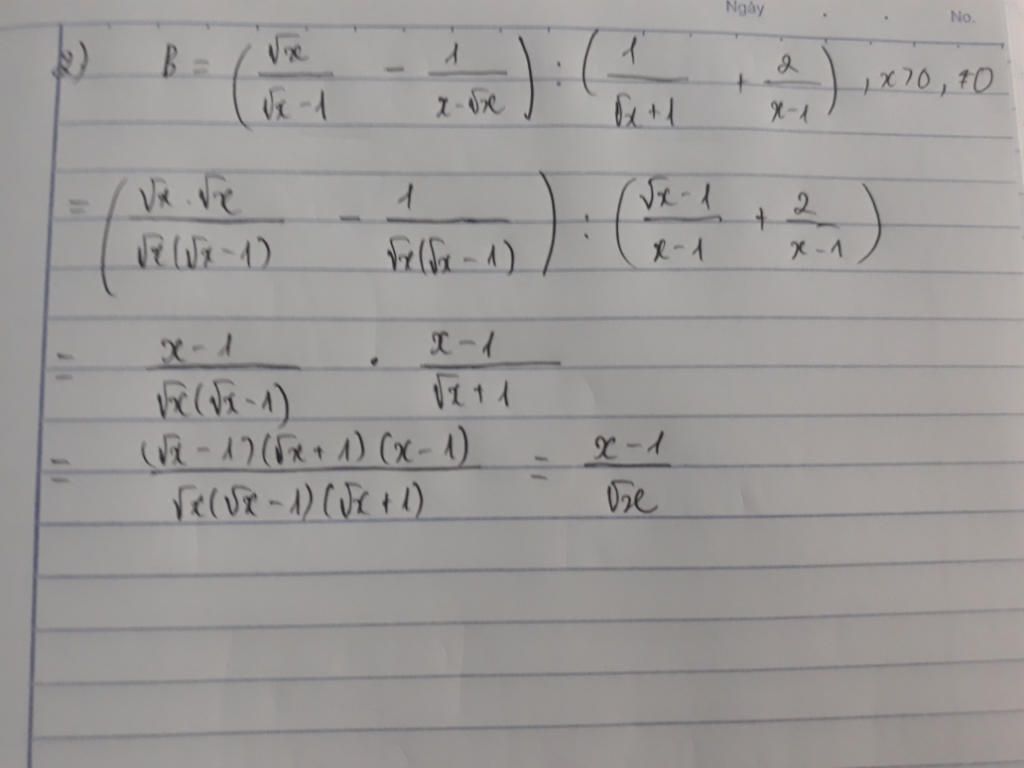 Ngày . . No.
2) B = (√x/(√x-1) - 1/(x-√x)) : (1/(√x+1) + 2/(x-1)) , x>0, ≠0
= (√x.√x/(√x(√x-1)) - 1/(√x(√x-1))) : ((√x-1)/(x-1) + 2/(x-1))
= (x-1)/(√x(√x-1)) . (x-1)/(√x+1)
= (√x-1)(√x+1)(x-1)/(√x(√x-1)(√x+1)) = (x-1)/√x